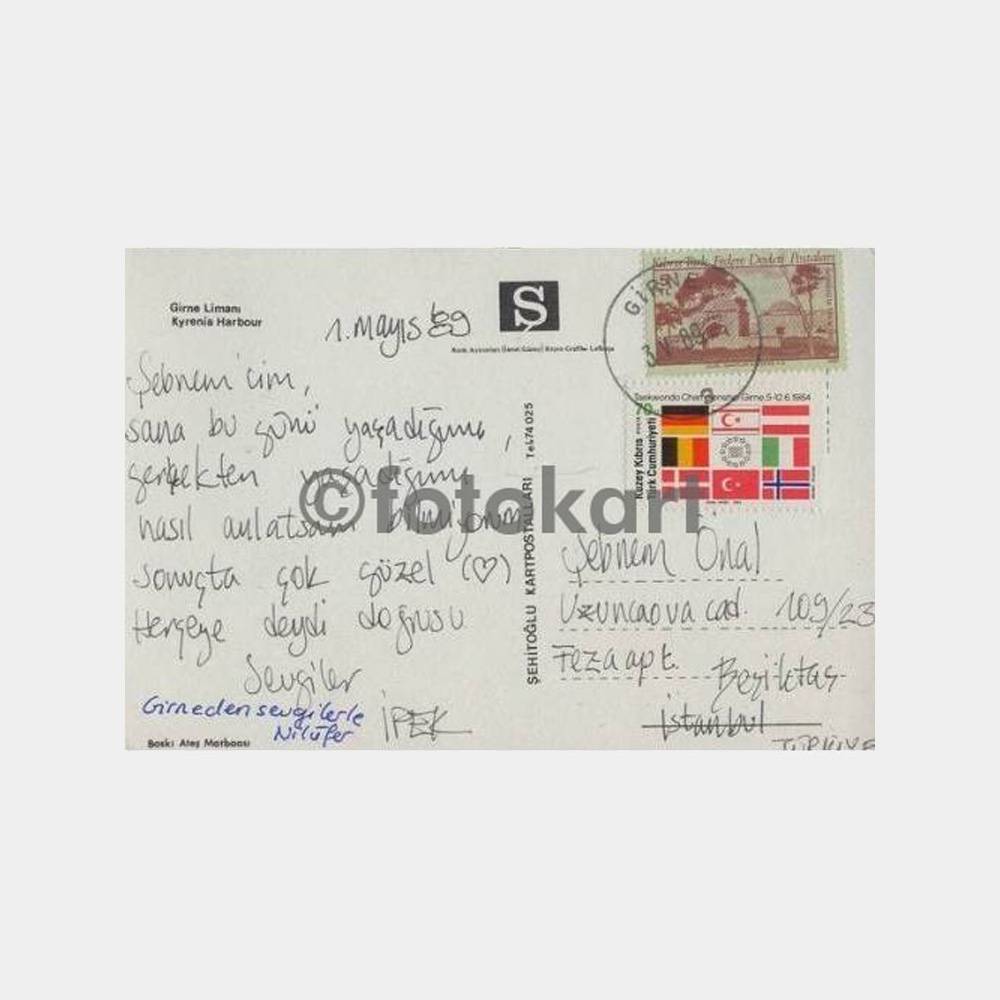 Girne Limanı
Kyrenia Harbour
1. Mayıs '89
Ş
Şebnem'cim,
sana bu günü yaşadığımı,
gerçekten yaşadığımı
nasıl anlatsam bilmiyorum
sonuçta çok güzel (♡)
Herşeye deydi doğrusu
Sevgiler
İPEK
Girneden sevgilerle
Nilüfer
Baskı Ateş Matbaası
ŞEHİTOĞLU KARTPOSTALLARI Tel:74 025
Kıbrıs Türk Federe Devleti Postaları
GİRNE
Taekwondo Championship Girne, 5-12.6.1984
70
Kuzey Kıbrıs
Türk Cumhuriyeti
Şebnem Önal
Uzuncaova cad. 109/23
Feza apt. Beşiktaş
İstanbul
TÜRKİYE
©fotokart